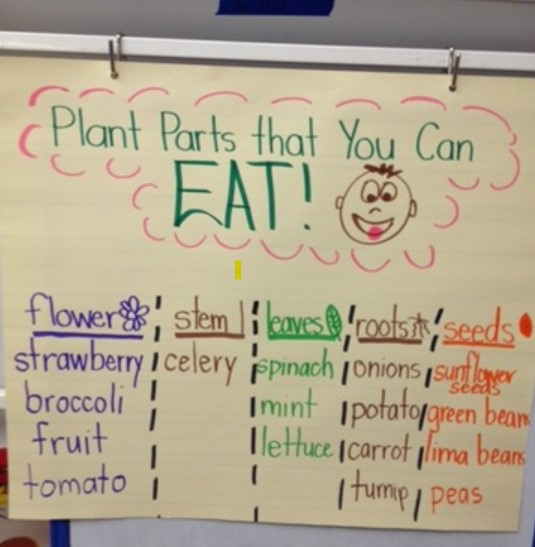 Plant Parts that You Can
EAT!
flower stem leaves roots seeds
strawberry celery spinach onions sunflower seeds
broccoli mint potato green beans
fruit lettuce carrot lima beans
tomato turnip peas